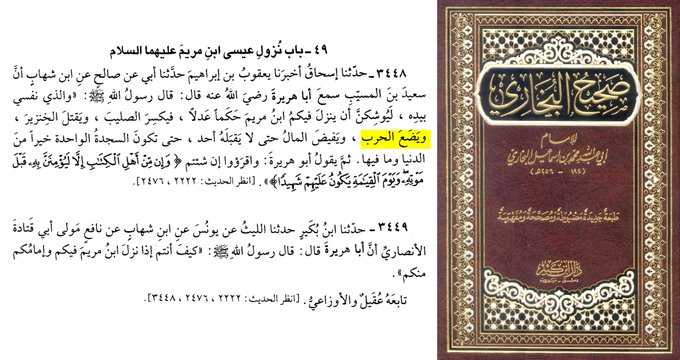 ٤٩ - باب نُزولِ عيسى ابنِ مريمَ عليهما السلام
٣٤٤٨ - حدّثنا إسحاقُ أخبرَنا يعقوبُ بن إبراهيمَ حدَّثنا أبي عن صالحٍ عنِ ابن شهابٍ أنَّ
سعيدَ بنَ المسيّبِ سمعَ أبا هريرةَ رضيَ اللهُ عنه قال: قال رسولُ اللهِ ﷺ: «والذي نفسي
بيدِه ، لَيُوشكنَّ أن ينزلَ فيكمُ ابنُ مريمَ حَكَماً عَدلاً ، فيكسرَ الصليبَ ، ويَقتلَ الخِنزيرَ ،
ويَضَعَ الحرب ، ويَفيضَ المالُ حتى لا يَقبَلَه أحد ، حتى تكونَ السجدةُ الواحدة خيراً من
الدنيا وما فيها. ثمَّ يقولُ أبو هريرةَ: واقرَؤوا إن شئتم ﴿ وَإِن مِّنْ أَهْلِ ٱلْكِتَـٰبِ إِلَّا لَيُؤْمِنَنَّ بِهِۦ قَبْلَ
مَوْتِهِۦ وَيَوْمَ ٱلْقِيَـٰمَةِ يَكُونُ عَلَيْهِمْ شَهِيدًا ﴾». [انظر الحديث: ٢٢٢٢ ، ٢٤٧٦].
٣٤٤٩ - حدّثنا ابنُ بُكَيرٍ حدثنا الليثُ عن يونسَ عنِ ابنِ شهابٍ عن نافعٍ مَولى أبي قَتادةَ
الأنصاريِّ أنَّ أبا هريرةَ قال: قال رسولُ اللهِ ﷺ: «كيفَ أنتم إذا نزلَ ابنُ مريمَ فيكم وإمامُكم
منكم».
تابعَهُ عُقَيلٌ والأوزاعيُّ. [انظر الحديث: ٢٢٢٢ ، ٢٤٧٦ ، ٣٤٤٨].
صحيح البخاري
للإمام
أبي عبد الله محمد بن إسماعيل البخاري
(١٩٤ - ٢٥٦ هـ)
طبعة جديدة مضبوطة ومصححة ومفهرسة
دار ابن كثير
دمشق - بيروت